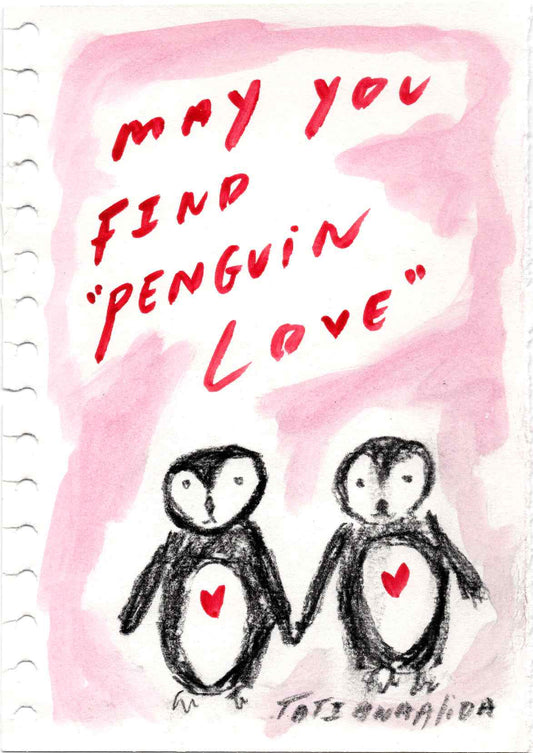 MAY YOU
FIND
"PENGUIN
LOVE"
TATIANAALIDA